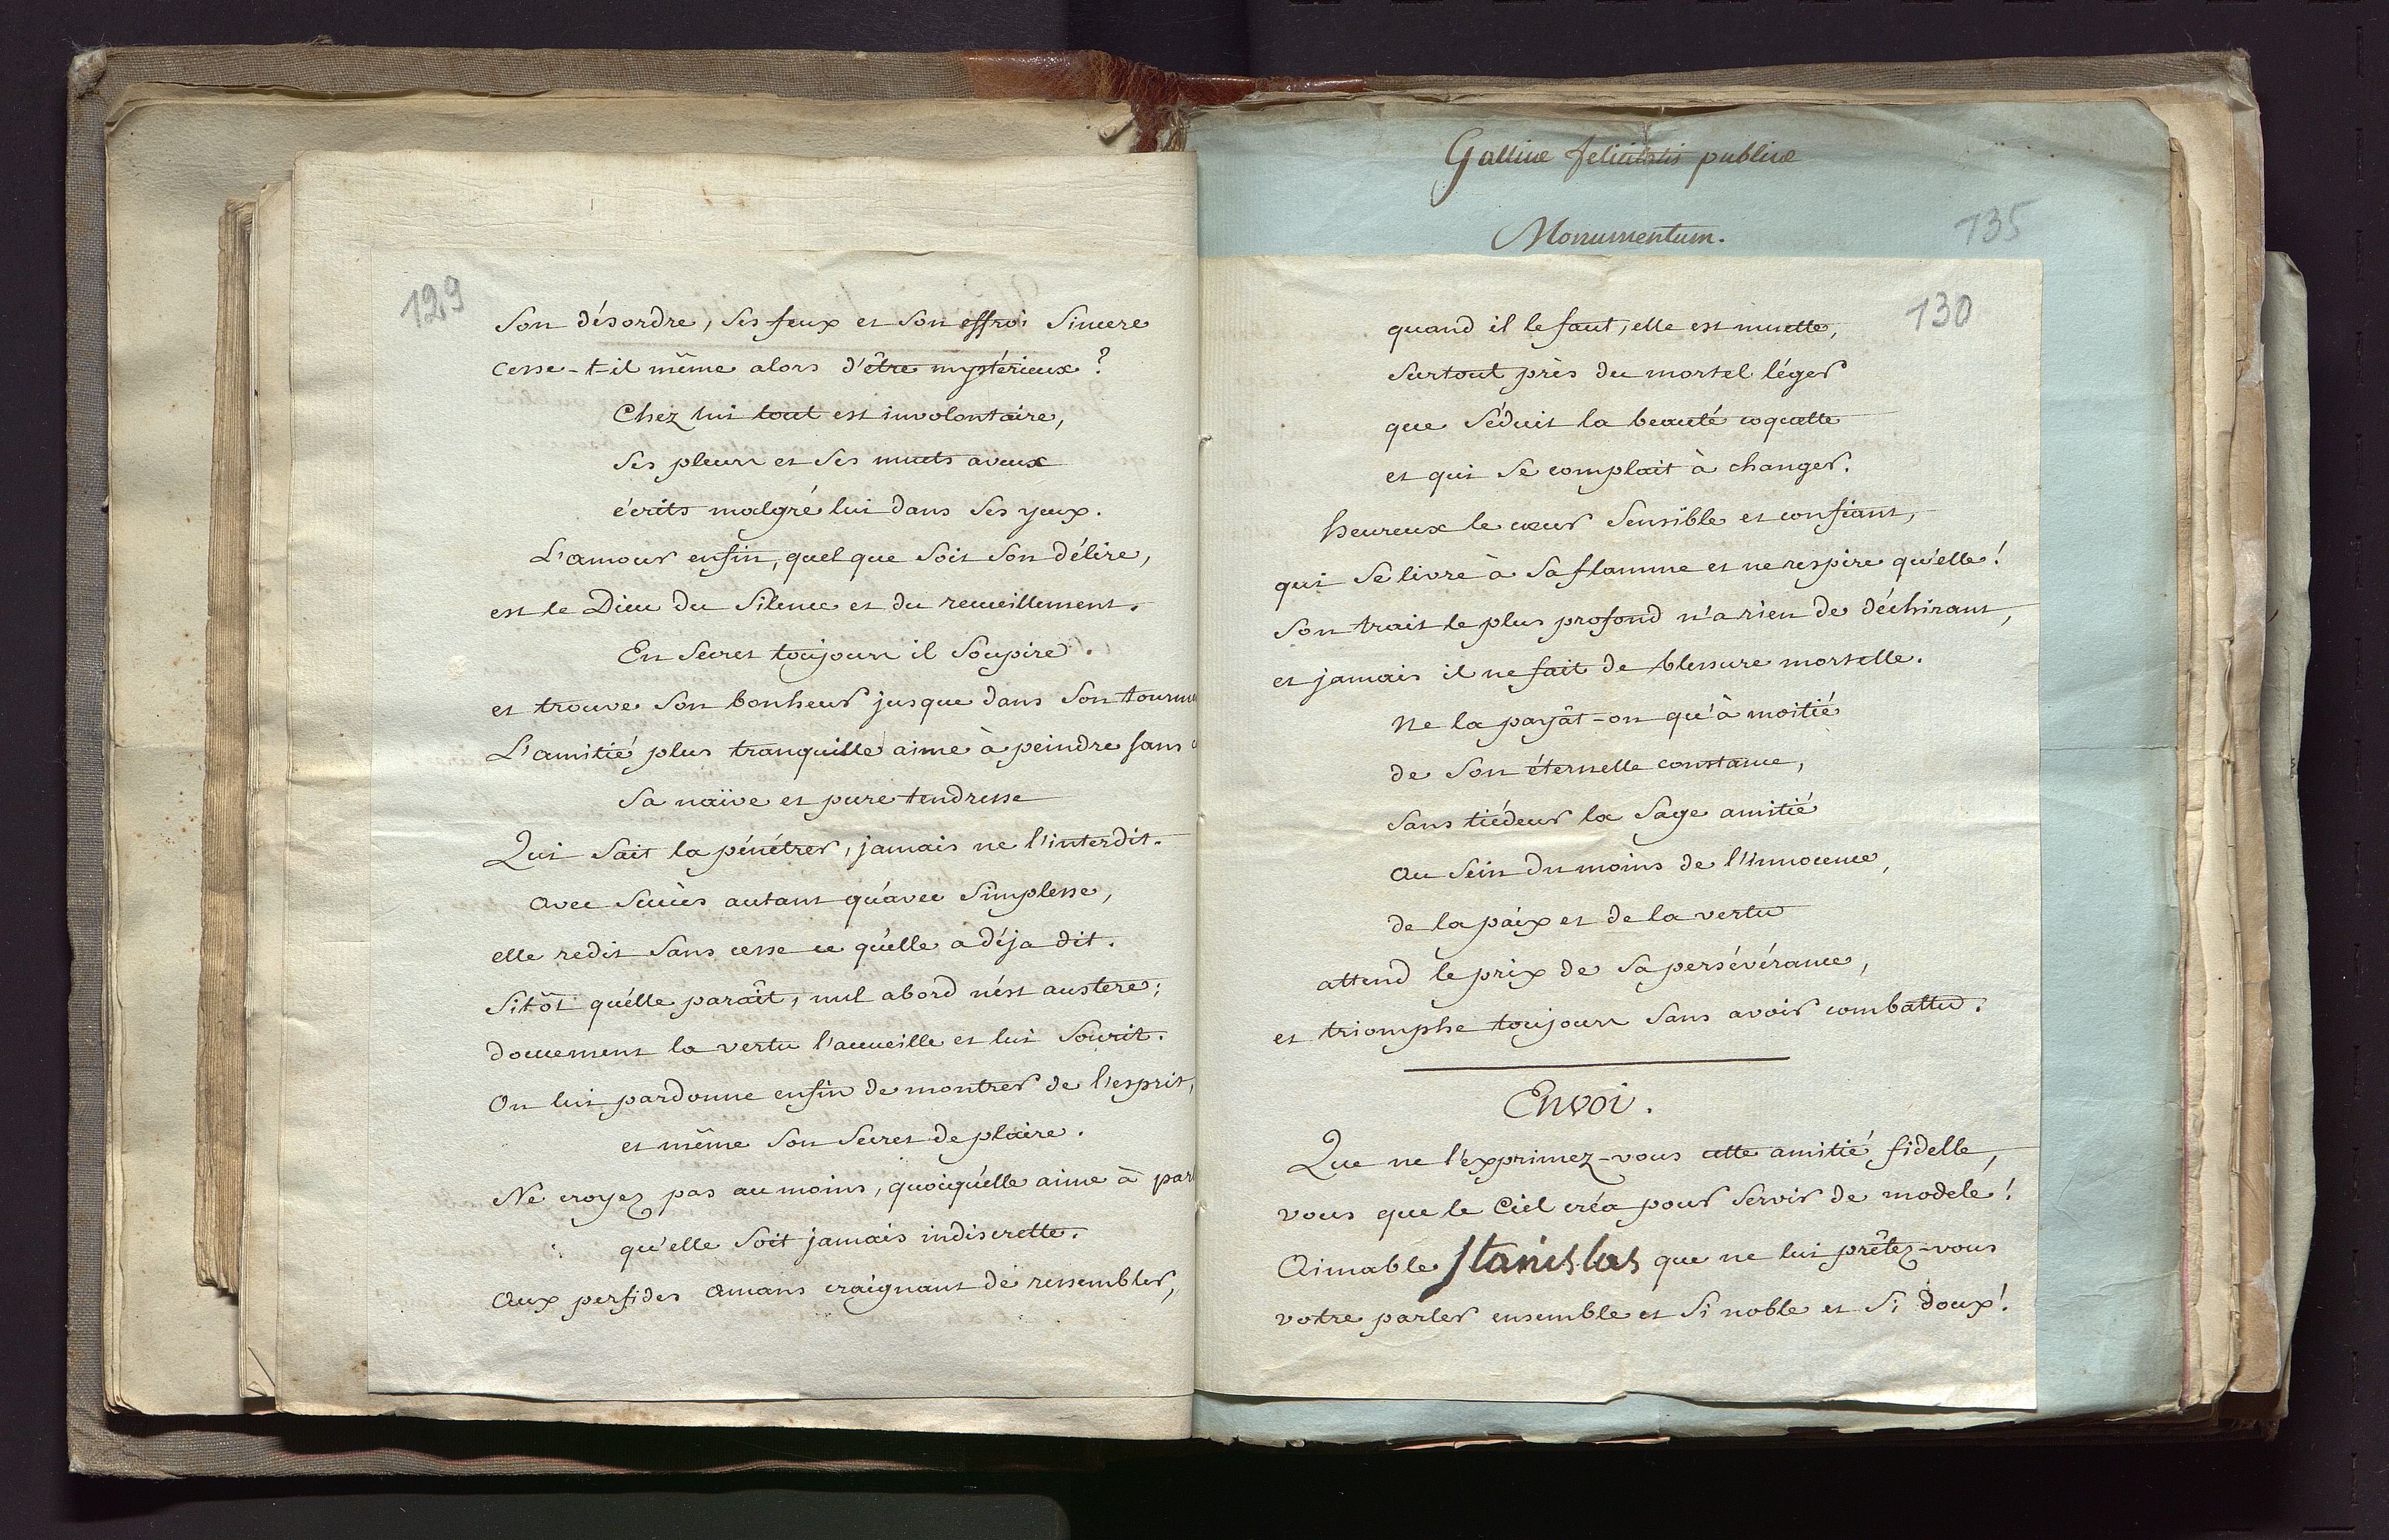 129
Son désordre, ses feux et son effroi sincere
cesse-t-il même alors d'être mystérieux?
Chez lui tout est involontaire,
ses pleurs et ses muets aveux
écrits malgré lui dans ses yeux.
L'amour enfin, quel que soit son délire,
est le Dieu du silence et du recueillement.
En secret toujours il soupire.
et trouve son bonheur jusque dans son
L'amitié plus tranquille aime à peindre sans
sa naïve et pure tendresse
Qui sait la pénétrer, jamais ne l'interdit.
avec succès autant qu'avec simplesse,
elle redit sans cesse ce qu'elle a déja dit.
Sitôt qu'elle paraît, nul abord n'est austere;
doucement la vertu l'accueille et lui sourit.
On lui pardonne enfin de montrer de l'esprit,
et même son secret de plaire.
Ne croyez pas au moins, quoiqu'elle aime à parl
qu'elle soit jamais indiscrette.
aux perfides amans craignant de ressembler,
Gallicæ felicitatis publicæ
Monumentum.
135
130
quand il le faut, elle est muette,
surtout près du mortel léger
que séduit la beauté coquette
et qui se complait à changer.
heureux le cœur sensible et confiant,
qui se livre à sa flamme et ne respire qu'elle!
son trait le plus profond n'a rien de déchirant,
et jamais il ne fait de blessure mortelle.
Ne la payât-on qu'à moitié
de son éternelle constance,
sans tiédeur la sage amitié
au sein du moins de l'innocence,
de la paix et de la vertu
attend le prix de sa persévérance,
et triomphe toujours sans avoir combattu.
Envoi.
Que ne l'exprimez-vous cette amitié fidelle,
vous que le Ciel créa pour servir de modele!
Aimable Stanislas que ne lui prêtez-vous
votre parler ensemble et si noble et si doux!